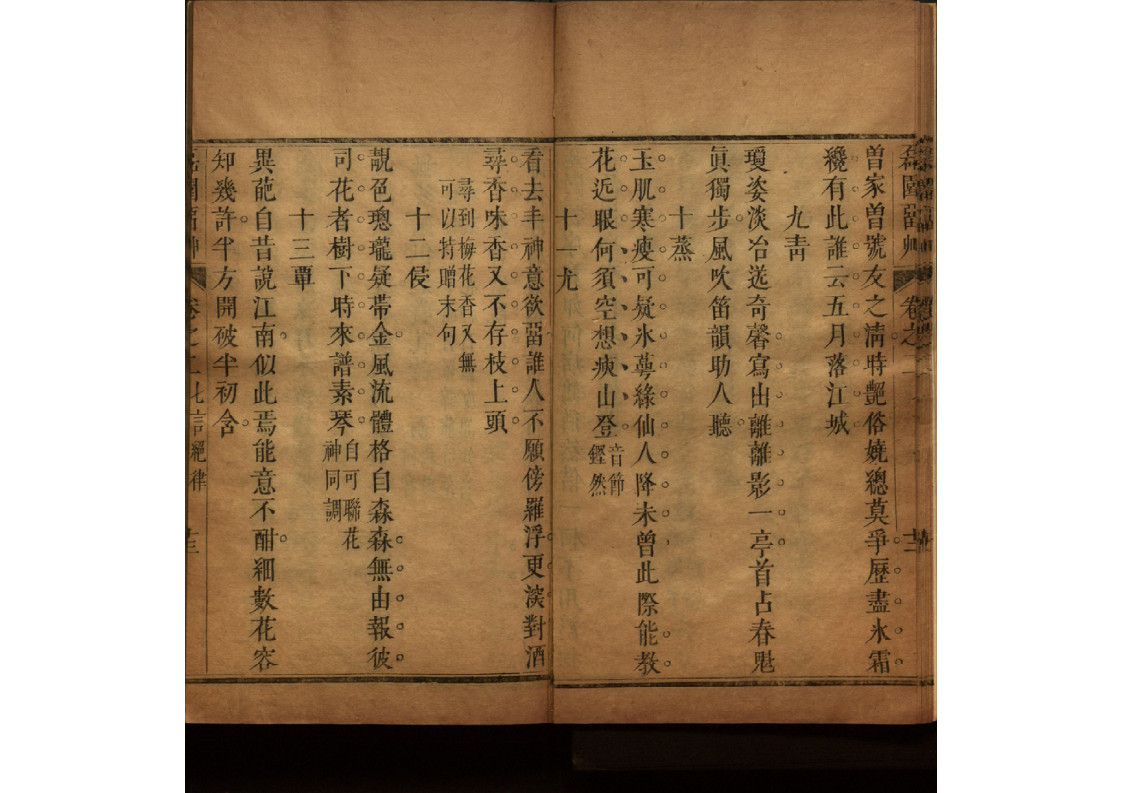 曽家曽號友之淸時艷俗嬈總莫爭歷盡氷霜
纔有此誰云五月落江城
九靑
瓊姿淡冶送奇馨寫出離離影一亭首占春魁
眞獨步風吹笛韻助人聽
十蒸
玉肌寒瘦可疑氷萼綠仙人降未曾此際能教
花近眼何須空想瘐山登音節鏗然
十一尤
看去丰神意欲畱誰人不願傍羅浮更淡對酒
尋香味香又不存枝上頭
尋到梅花香又無
可以持贈末句
十二侵
靚色璁瓏疑帶金風流體格自森森無由報彼
司花者樹下時來譜素琴自可聯花神同調
十三覃
異葩自昔說江南似此焉能意不酣細數花容
知幾許半方開破半初含
卷之二七言絕律